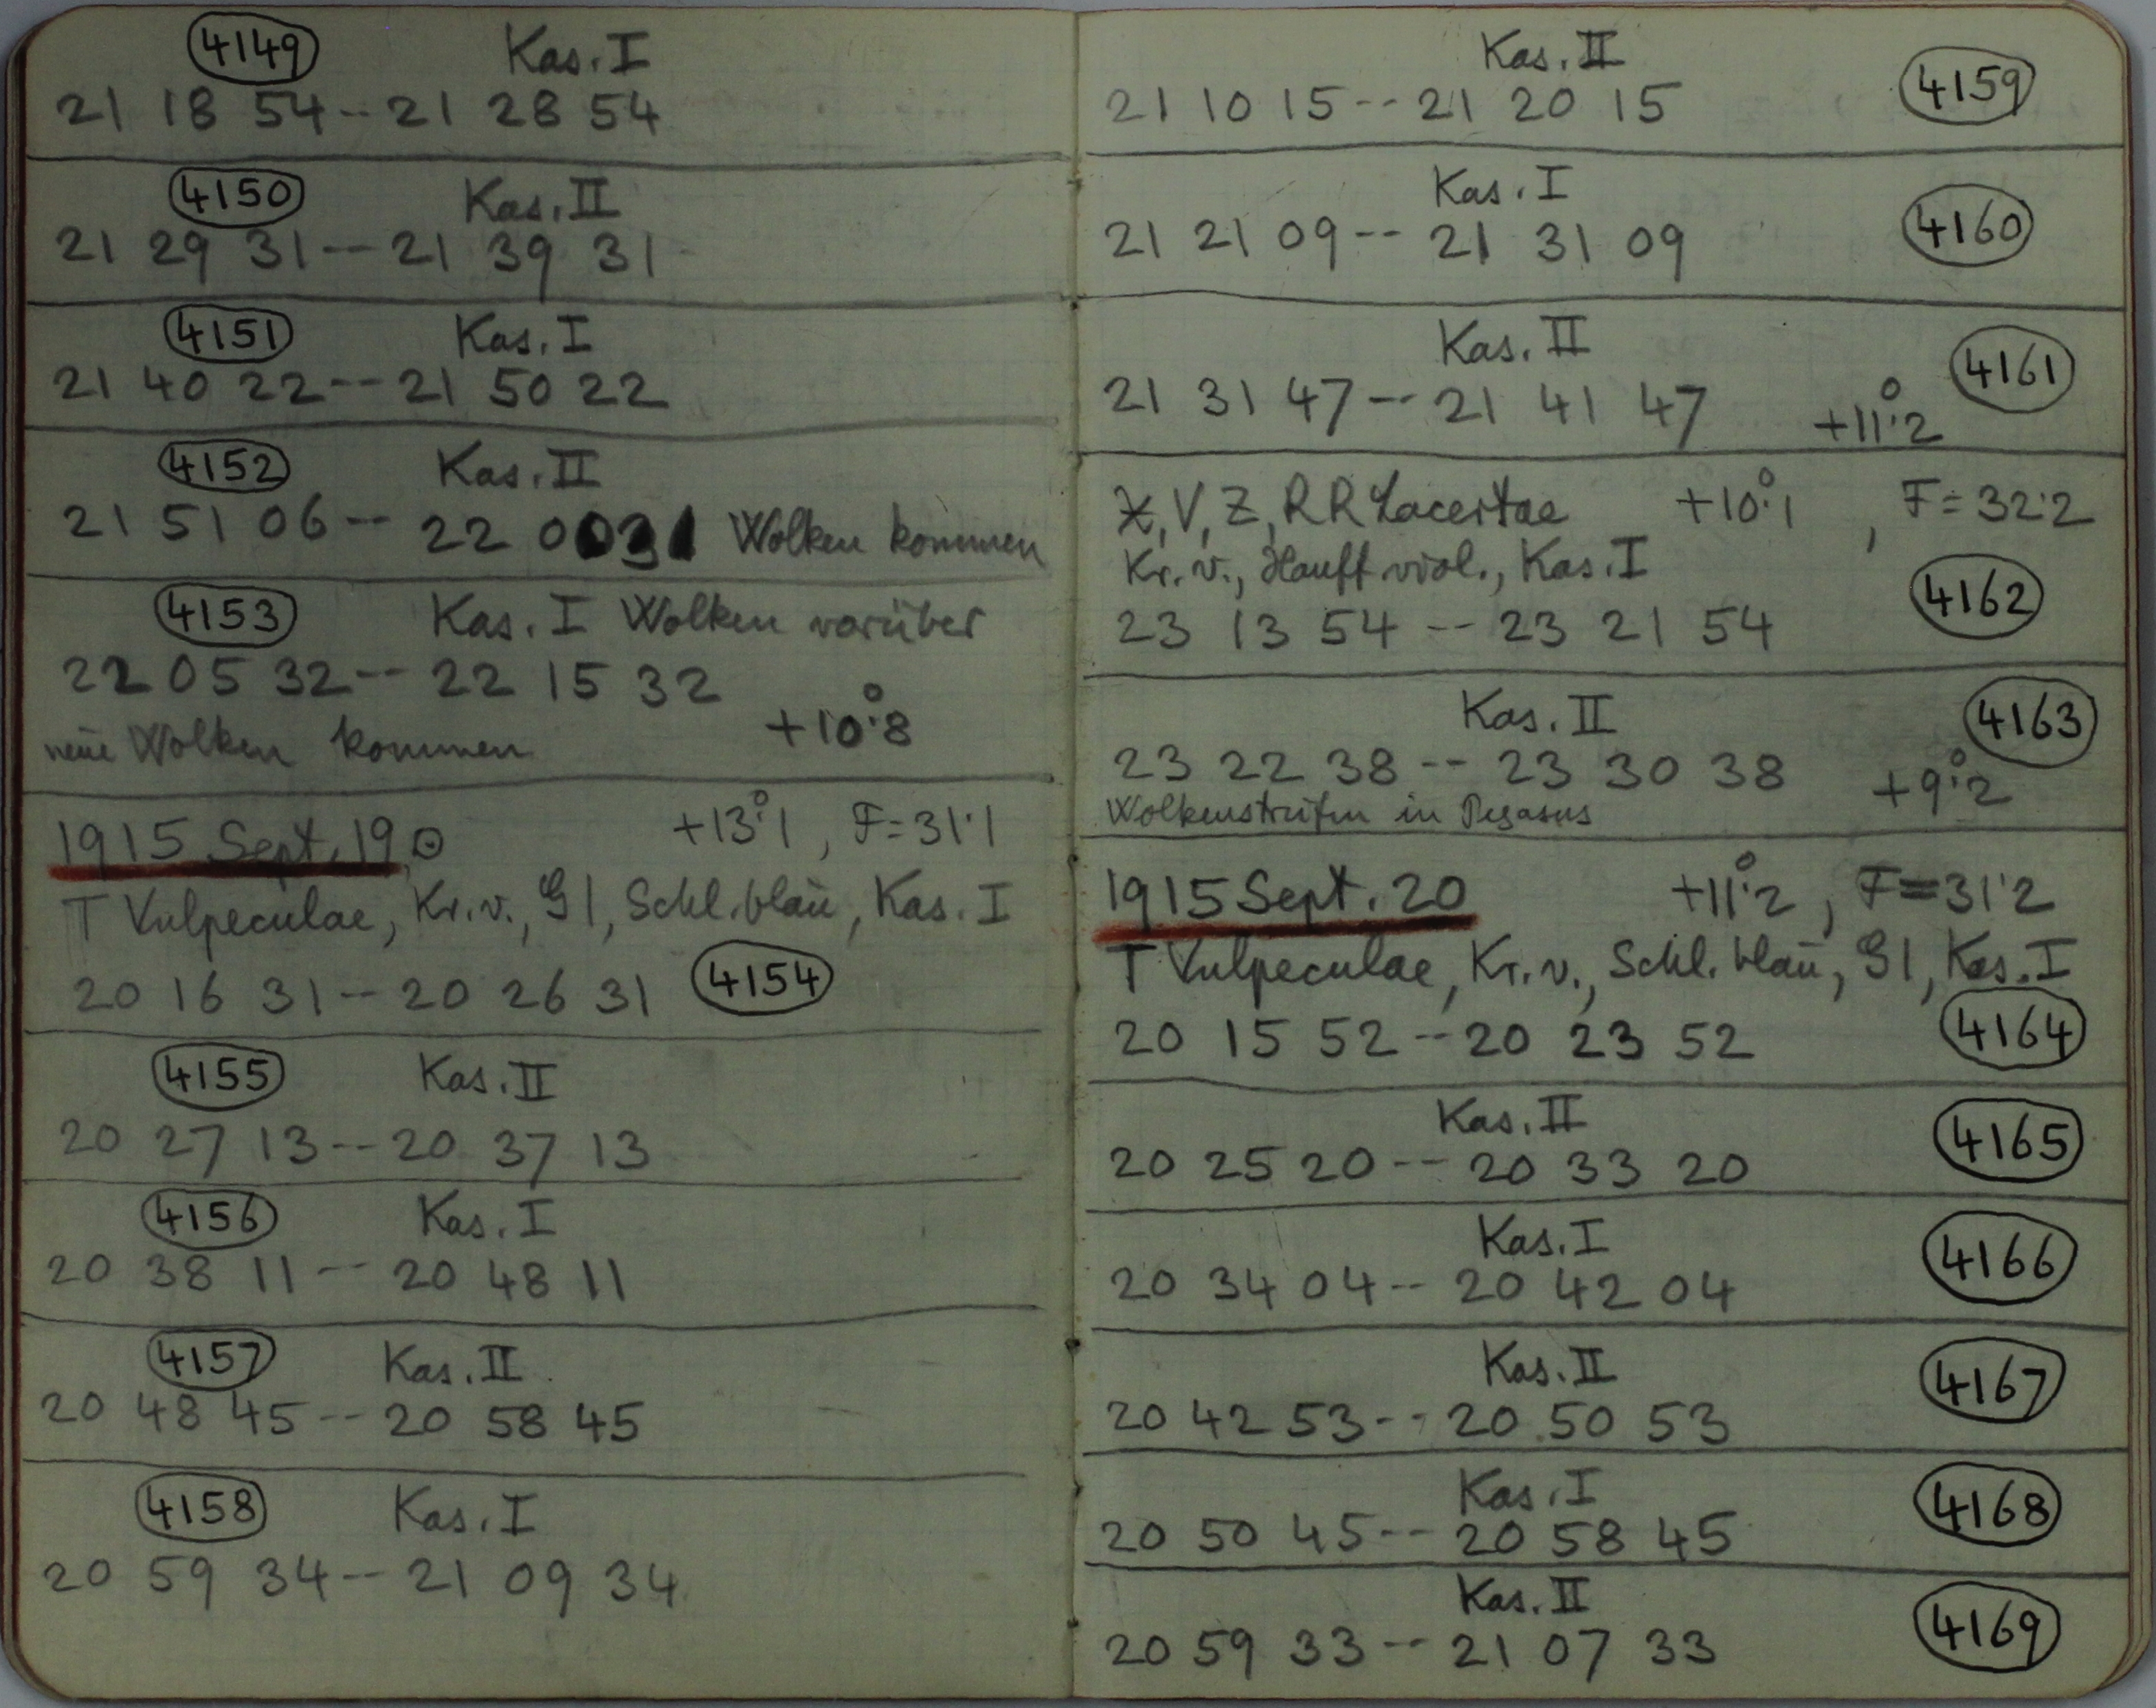 4149 Kas. I
21 18 54 -- 21 28 54
4150 Kas. II
21 29 31 -- 21 39 31
4151 Kas. I
21 40 22 -- 21 50 22
4152 Kas. II
21 51 06 -- 22 0 Wolken kommen
4153 Kas. I Wolken vorüber
22 05 32 -- 22 15 32
neue Wolken kommen +10°.8
1915 Sept. 19 ⊙ +13°.1, F=31.1
T Vulpeculae, Kr.v., Gl, Schl.blau, Kas. I
20 16 31 -- 20 26 31 4154
4155 Kas. II
20 27 13 -- 20 37 13
4156 Kas. I
20 38 11 -- 20 48 11
4157 Kas. II
20 48 45 -- 20 58 45
4158 Kas. I
20 59 34 -- 21 09 34
Kas. II 4159
21 10 15 -- 21 20 15
Kas. I 4160
21 21 09 -- 21 31 09
Kas. II 4161
21 31 47 -- 21 41 47 +11°.2
X, V, Z, RR Lacertae +10°.1, F=32.2
Kr.v., Hauff viol., Kas. I 4162
23 13 54 -- 23 21 54
Kas. II 4163
23 22 38 -- 23 30 38 +9°.2
Wolkenstreifen in Pegasus
1915 Sept. 20 +11°.2, F=31.2
T Vulpeculae, Kr.v., Schl.blau, Gl, Kas. I
20 15 52 -- 20 23 52 4164
Kas. II 4165
20 25 20 -- 20 33 20
Kas. I 4166
20 34 04 -- 20 42 04
Kas. II 4167
20 42 53 -- 20 50 53
Kas. I 4168
20 50 45 -- 20 58 45
Kas. II 4169
20 59 33 -- 21 07 33